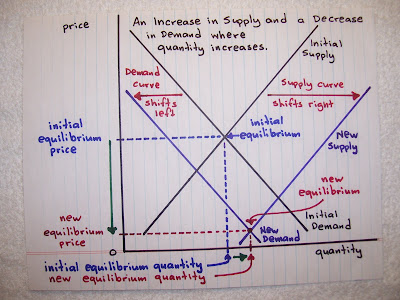 price
An Increase in Supply and a Decrease
in Demand where
quantity increases.
Initial
Supply
Demand
curve
shifts
left
Supply curve
shifts right
initial
equilibrium
price
initial
equilibrium
New
Supply
new
equilibrium
new
equilibrium
price
Initial
Demand
New
Demand
O
quantity
initial equilibrium quantity
new equilibrium quantity